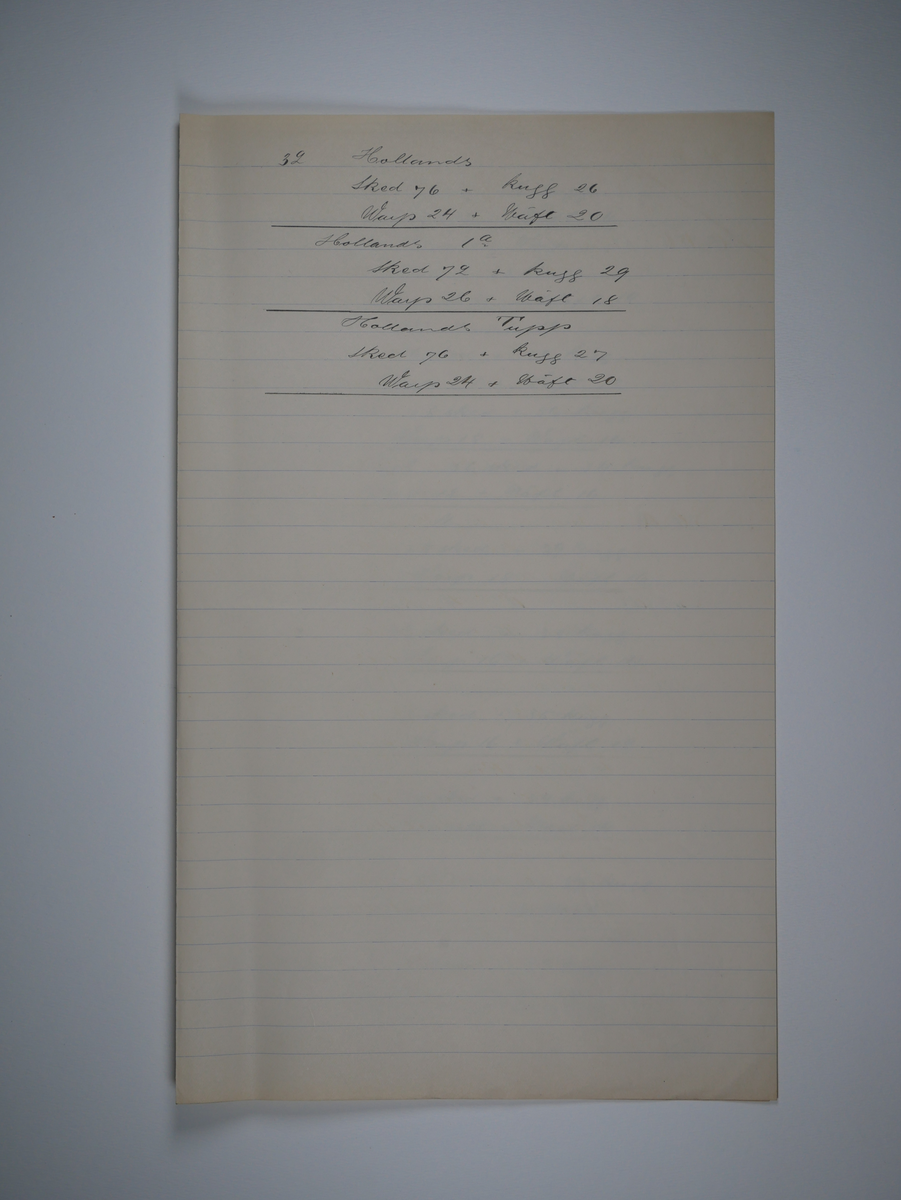 32 Hollands
Sked 76 + kugg 26
Warp 24 + Wäft 20
Hollands 1a
Sked 72 + kugg 29
Warp 26 + Wäft 18
Hollands Tupp
Sked 76 + kugg 27
Warp 24 + Wäft 20